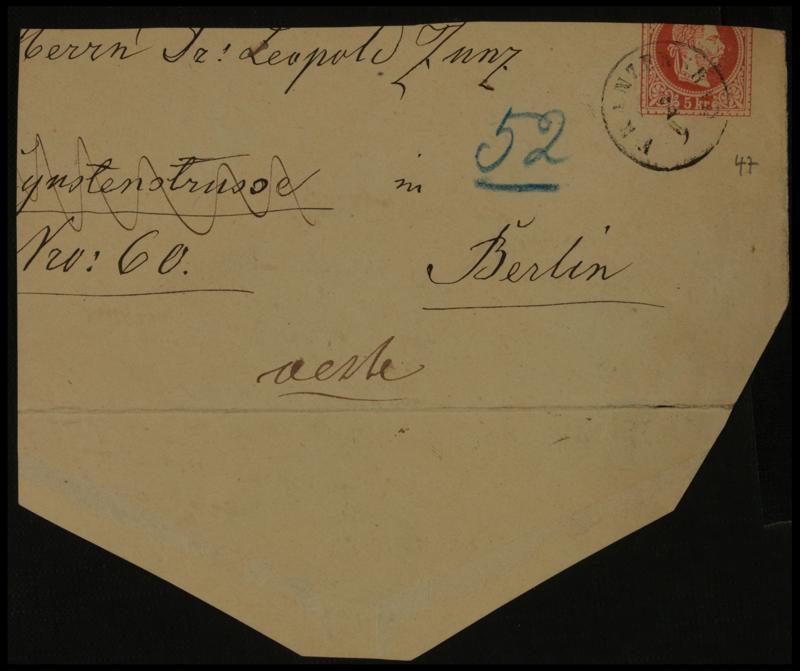 Herrn Dr: Leopold Zunz
5 kr
FRANZENSBAD
52
47
in
Nro: 60.
Berlin